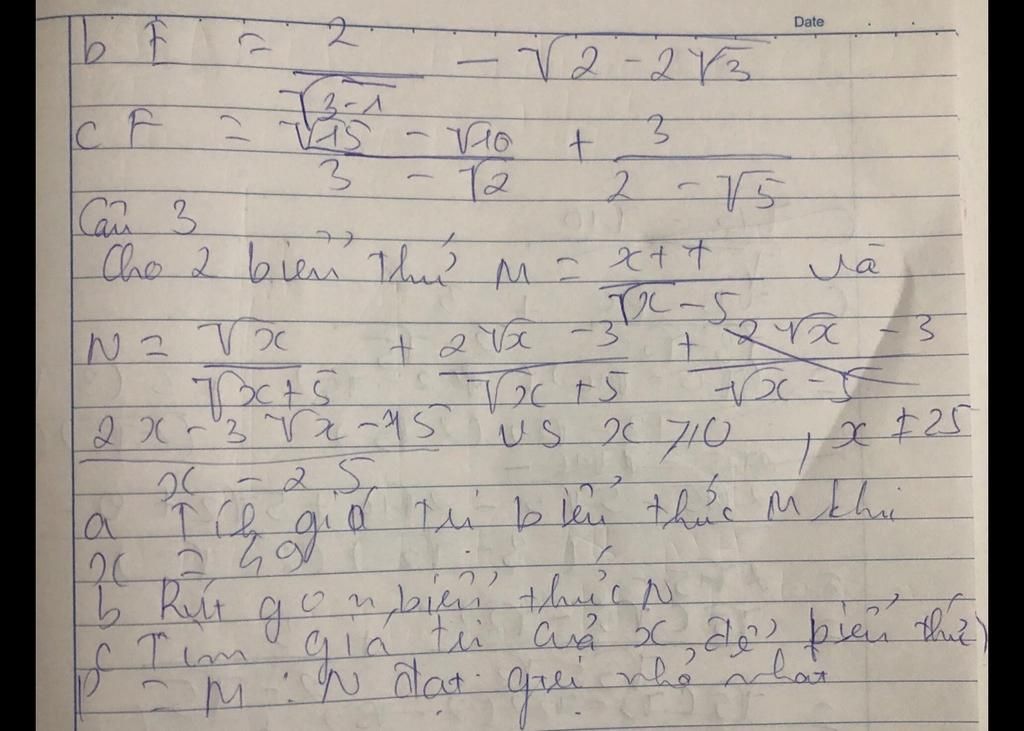 Date
b E = 2/√(3-1) - √(2-2√3)
c F = (√15 - √10)/(3 - √2) + 3/(2 - √5)
Câu 3
Cho 2 biểu thứ M = (x+7)/(√x-5) và
N = √x/(√x+5) + (2√x-3)/(√x+5) +
(2x-3√x-15)/(x-25) vs x ≥ 0, x ≠ 25
a Tíh giá trị biểu thức M khi
x = 49
b Rút gọn biểu thức N
c Tìm giá trị của x để biểu thứ
P = M : N đạt giá nhỏ nhat